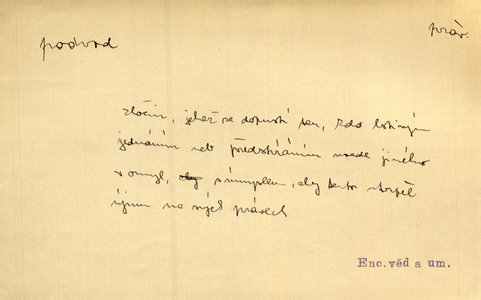 podvod
práv.
zločin, jehož se dopustí ten, kdo lstivým
jednáním neb předstíráním uvede jiného
v omyl, s úmyslem, aby tento utrpěl
újmu na svých právech
Enc. věd a um.